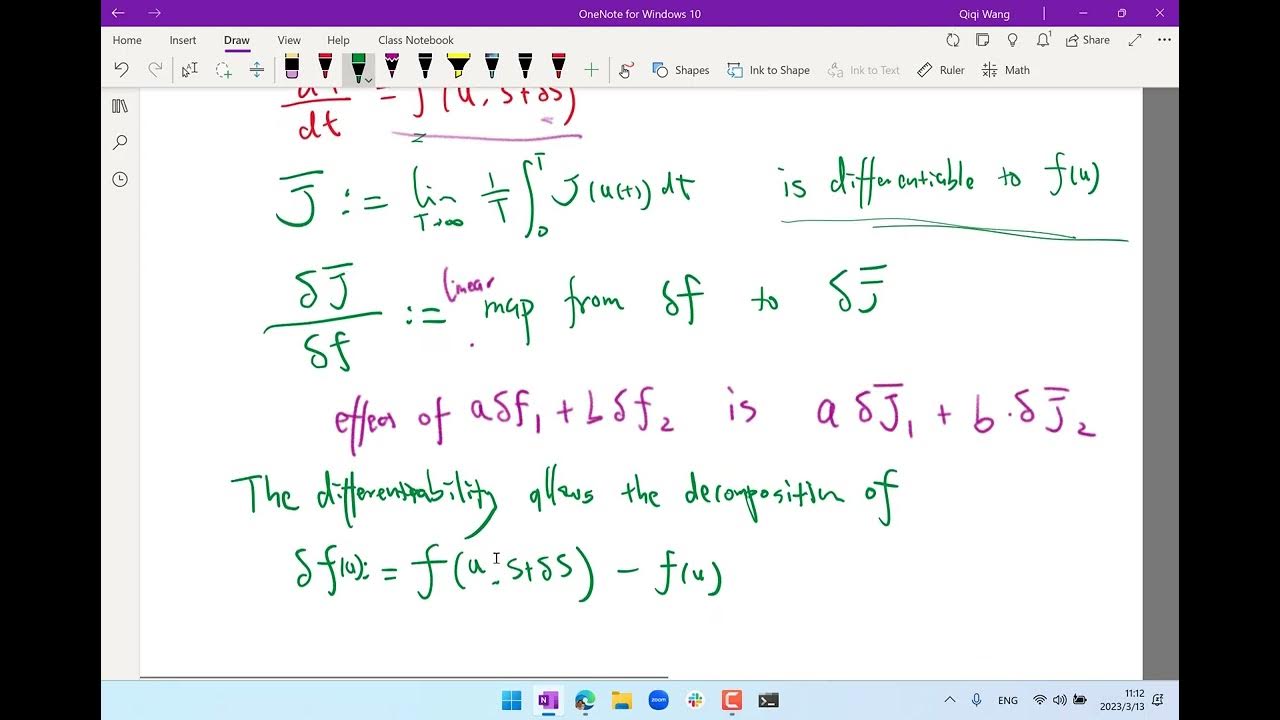 OneNote for Windows 10
Qiqi Wang
Home Insert Draw View Help Class Notebook
Share
Shapes Ink to Shape Ink to Text Ruler Math
dt = f(u, s+δs)
J̅ := lim T→∞ 1/T ∫₀ᵀ J(u(t)) dt is differentiable to f(u)
δJ̅/δf := linear map from δf to δJ̅
effect of aδf₁ + bδf₂ is a δJ̅₁ + b·δJ̅₂
The differentiability allows the decomposition of
δf(u) := f(u, s+δs) − f(u)
zoom
ENG
11:12
2023/3/13